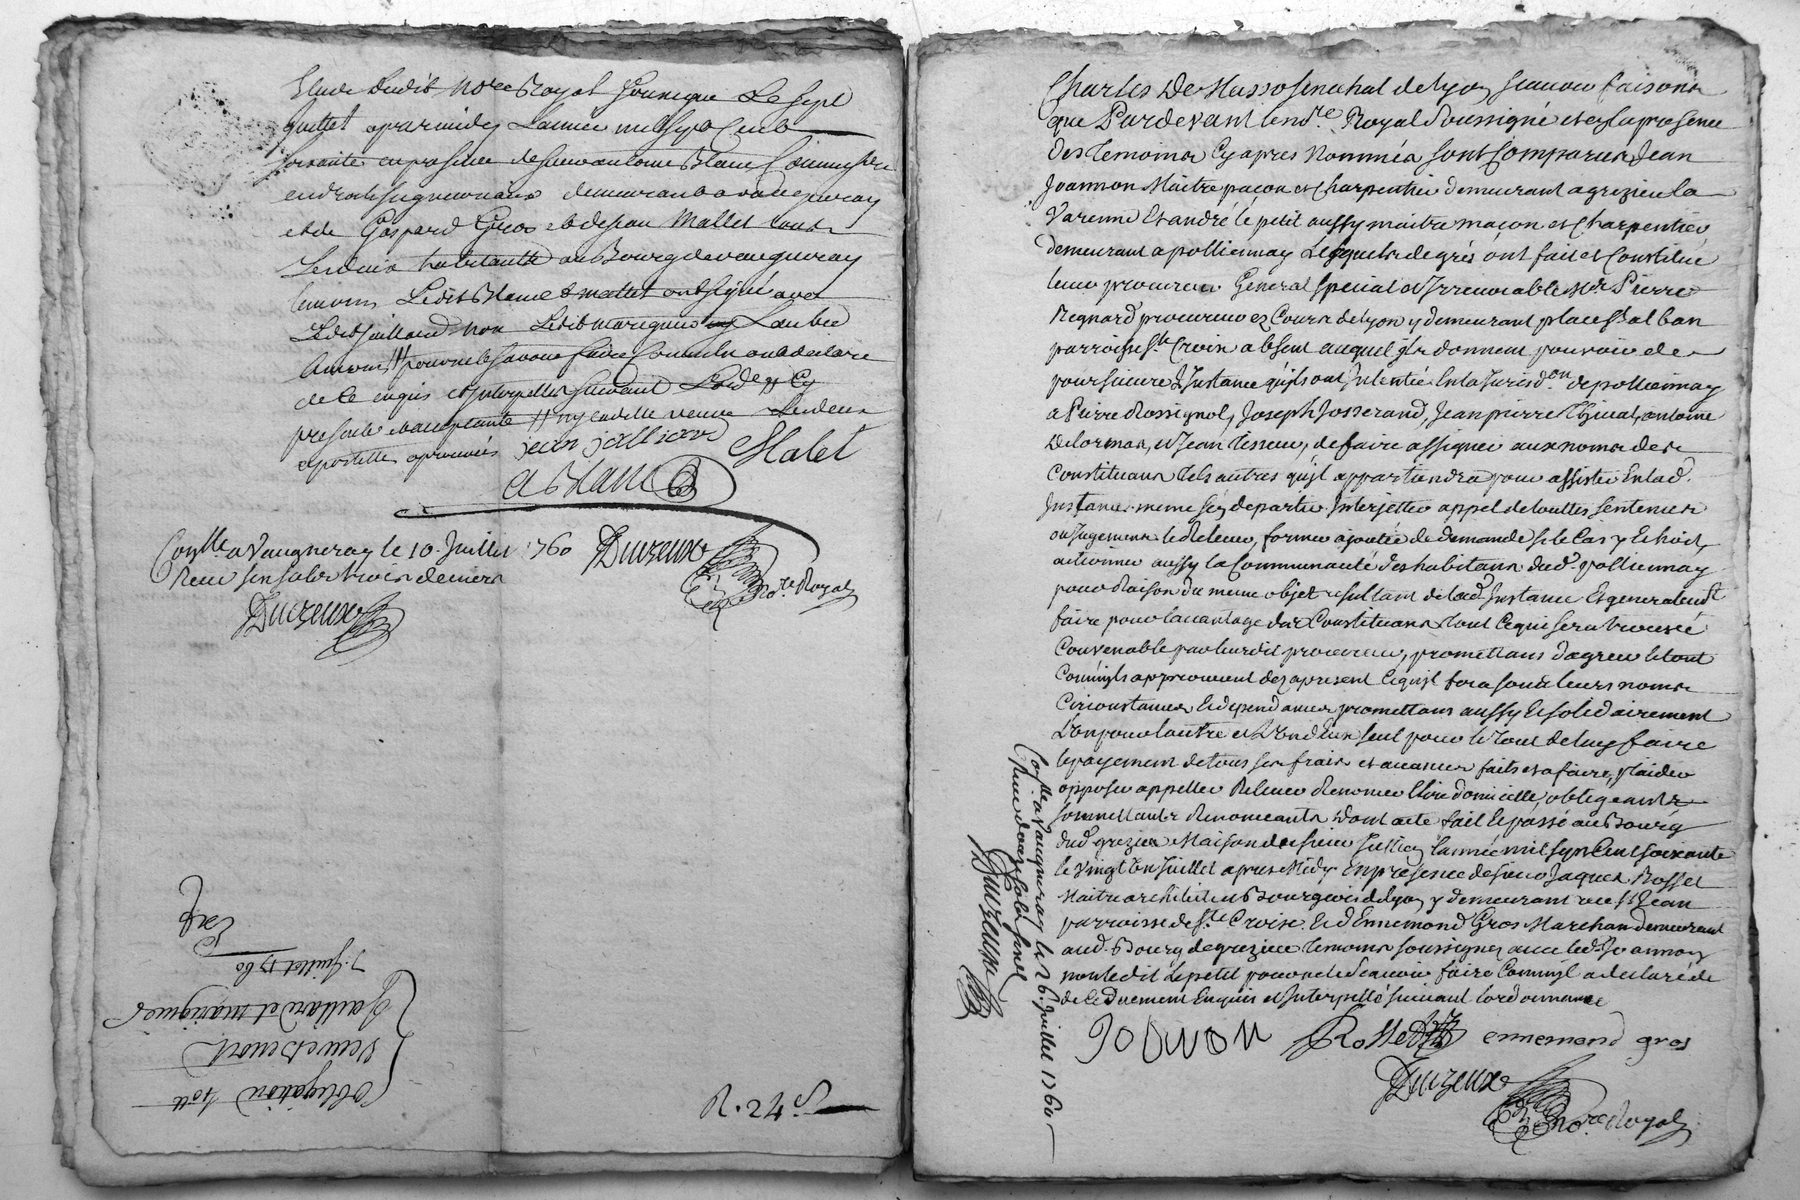 Etude dudit No.re Royal soussigné Le sept
Juillet apres midy Lannée mil sept Cent
soixante en presence de sieur antoine Blanc Commissre
en droits seigneuriaux demeurant a vaugneray
et de Gaspard Gros et de jean Mallet tous
Les deux habitants au Bourg de vaugneray
temoins Ledit Blanc & mallet ont signé avec
Ledit Jailliard non Ledit marignier
pour ne le savoir faire Comme ont declaré
de Ce enquis et interpellés suivant Lord.e
presente et acceptante ny ladite veuve Les deux
apostilles aprouvés jean jalliard Malet
A Blanc
Con.lle a Vaugneray le 10. Juillet 1760 Duvzeux
Receu six sols trois deniers No.re Royal
Duvzeux
Obligation
Veuve Benoit
Jaillard et marignier
7. Juillet 1760
Exp
R. 24 s
Charles De Masso senechal de Lyon scavoir faisons
que Pardevant le no.re Royal soussigné et en la presence
des Temoins Cy apres Nommés sont Comparus Jean
Joannon Maitre maçon et Charpentier demeurant a grezieu la
Varenne Et andré le petit aussy maitre maçon et Charpentier
demeurant a pollionnay Lesquels de grés ont fait et Constitué
leur procureur General special et Irrevocable M.e Pierre
Regnard procureur ez Cours de Lyon y demeurant place S.t alban
parroisse S.te Croix absent auquel ils donnent pouvoir de
poursuivre L'Instance qu'ils ont Intentée En la Jurisd.on de pollionnay
a Pierre Rossignol, Joseph Josserand, Jean pierre Thinet, antoine
Delorme, et Jean Tisseur, de faire assigner aux noms des
Constituans tels autres qu'il appartiendra pour assister En lad.
Instance meme s'en departir Interjetter appel de touttes sentences
ou Jugemens Le Relever, former ajoutée de demande si le Cas y Echoit,
actionner aussy la Communauté des habitans dud. pollionnay
pour Raison du meme objet resultant de lad. Instance Et generalem.t
faire pour lavantage des Constituans tout Ce qui sera trouvé
Convenable par leur dit procureur, promettans d'agréer le tout
Comme ils approuvent dez apresent Ce qu'il fera sous leurs noms
Circonstances et dependances promettans aussy et solidairement
L'un pour lautre et L'un d'eux seul pour le tout de luy faire
le payement de tous ses frais et avances faits et a faire, plaider
opposer appeller Relever Renoncer Elire domicille, obligeants
soumettants Renonceants dont acte fait et passé au Bourg
dud. grezieu Maison de sieur Jullien lannée mil sept Cent soixante
le vingt un Juillet apres Midy En presence de sieur Jaques Rosset
Maitre architecte et Bourgeois de Lyon y demeurant rue S.t Jean
parroisse de S.te Croix et d'Ennemond Gros Marchand demeurant
aud. Bourg de grezieu Temoins soussignez avec led. Joannon
non ledit Lepetit pour ne le scavoir faire Comme il a declaré de
de Ce duement Enquis et Interpellé suivant Lordonnance
JoAnnON Rosset ennemond gros
Duvzeux
No.re Royal
Con.lle a Vaugneray le 26. Juillet 1760
Receu douze sols six d.
Duvzeux